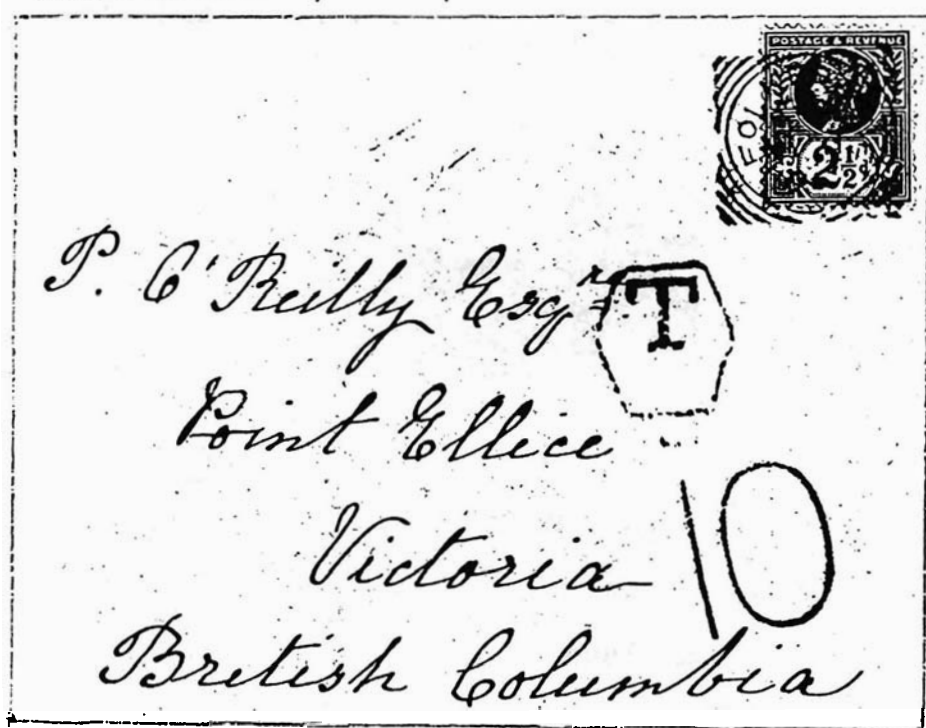 POSTAGE & REVENUE
2 1/2d
P. O'Reilly Esqr
T
Point Ellice
10
Victoria
British Columbia